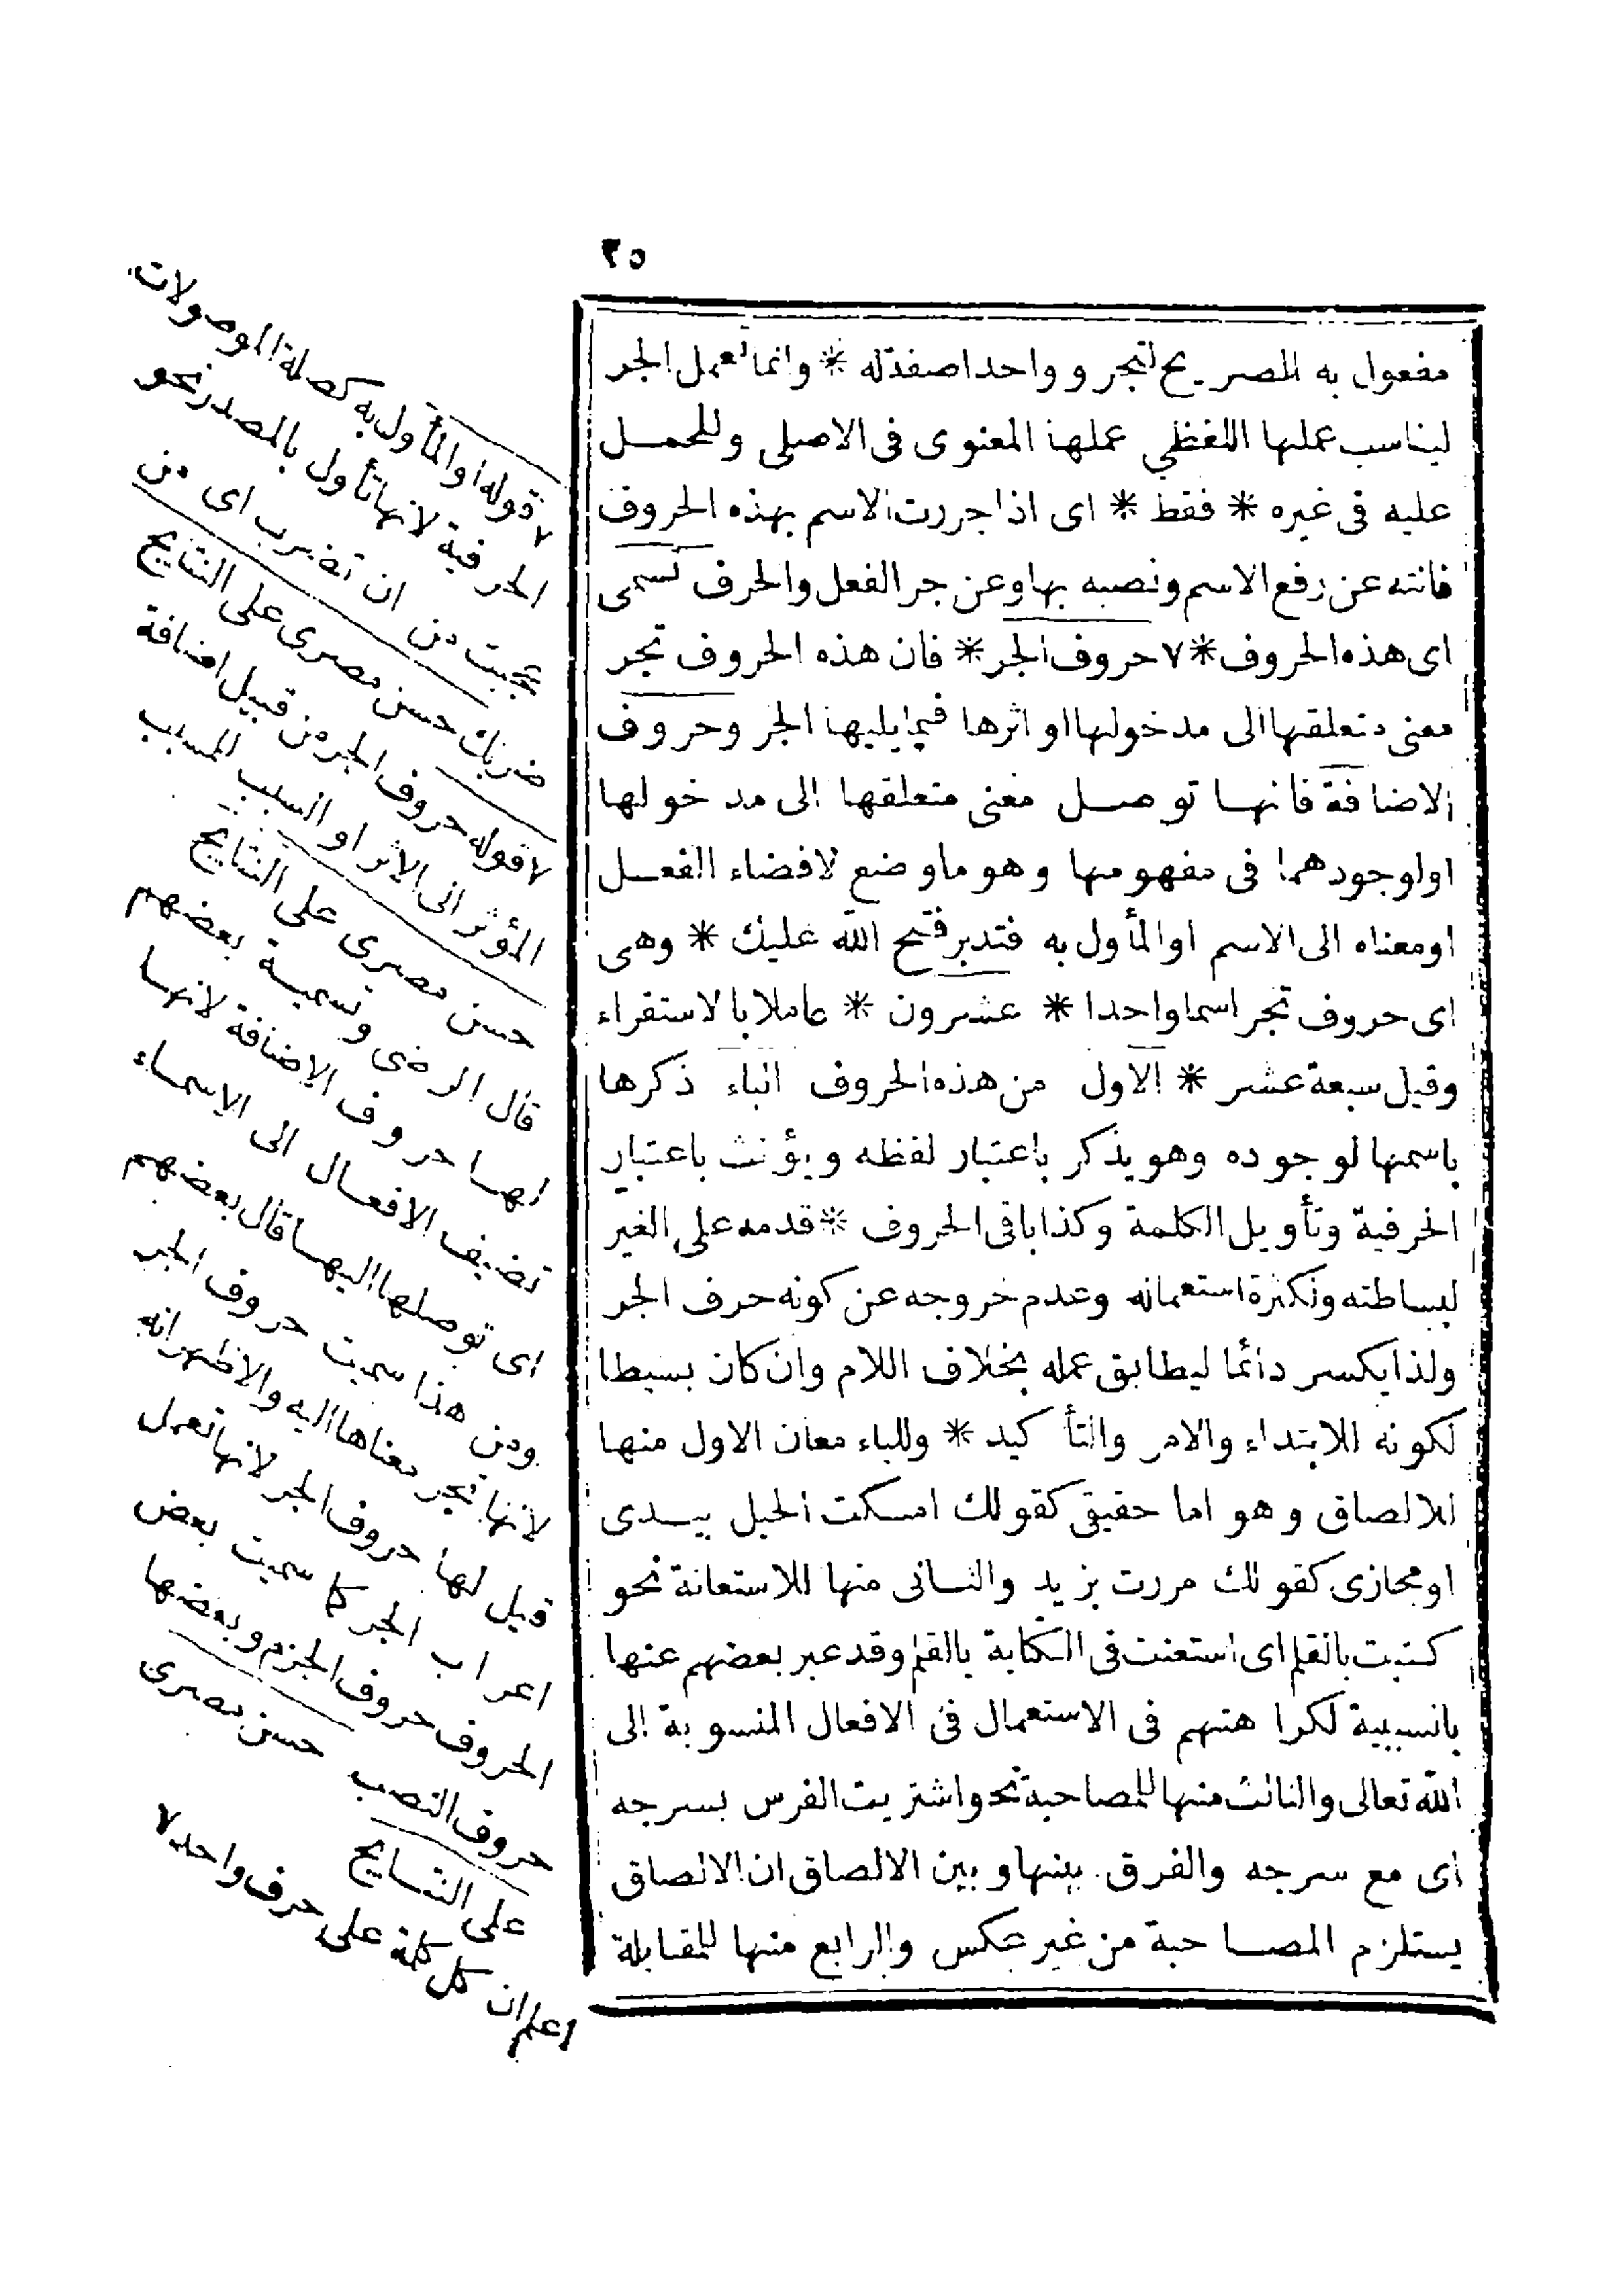 ٢٥
مفعول به الصريح لتجر وواحدا صفة له * وانما تعمل الجر
ليناسب عملها اللفظي عملها المعنوى فى الاصلى وللحمل
عليه فى غيره * فقط * اى اذا جررت الاسم بهذه الحروف
فانته عن رفع الاسم ونصبه بها وعن جر الفعل والحرف تسمى
اى هذه الحروف * ٧ حروف الجر * فان هذه الحروف تجر
معنى متعلقها الى مدخولها او اثرها فيما يليها الجر وحروف
الاضافة فانها توصل معنى متعلقها الى مدخولها
او لوجودهما فى مفهومها وهو ماوضع لافضاء الفعل
اومعناه الى الاسم او المأول به فتدبر فتح الله عليك * وهى
اى حروف تجر اسما واحدا * عشرون * عاملا بالاستقراء
وقيل سبعة عشر * الاول من هذه الحروف الباء ذكرها
باسمها لوجوده وهو يذكر باعتبار لفظه ويؤنث باعتبار
الحرفية وتأويل الكلمة وكذا باقى الحروف * قدمه على الغير
لبساطته ولكثرة استعماله وعدم خروجه عن كونه حرف الجر
ولذا يكسر دائما ليطابق عمله بخلاف اللام وان كان بسيطا
لكونه للابتداء والامر والتأكيد * وللباء معان الاول منها
للالصاق وهو اما حقيقى كقولك امسكت الحبل بيدى
اومجازى كقولك مررت بزيد والثانى منها للاستعانة نحو
كتبت بالقلم اى استعنت فى الكتابة بالقلم وقد عبر بعضهم عنها
بالسببية لكراهتهم فى الاستعمال فى الافعال المنسوبة الى
الله تعالى والثالث منها للمصاحبة نحو اشتريت الفرس بسرجه
اى مع سرجه والفرق بينها وبين الالصاق ان الالصاق
يستلزم المصاحبة من غير عكس والرابع منها للمقابلة
٧ قوله او المأول به كصلة الموصولات
الحرفية لانها تأول بالمصدر نحو
عجبت من ان تضرب اى من
ضربك حسن مصرى على النتايج
٧ قوله حروف الجر من قبيل اضافة
المؤثر الى الاثر او السبب للمسبب
حسن مصرى على النتايج
قال الرضى وتسمية بعضهم
لها حروف الاضافة لانها
تضيف الافعال الى الاسماء
اى توصلها اليها قال بعضهم
ومن هذا سميت حروف الجر
لانها تجر معناها اليه والاظهر انه
قيل لها حروف الجر لانها تعمل
اعراب الجر كما سميت بعض
الحروف حروف الجزم وبعضها
حروف النصب حسن مصرى
على النتايج
اعلم ان كل كلمة على حرف واحد ٧